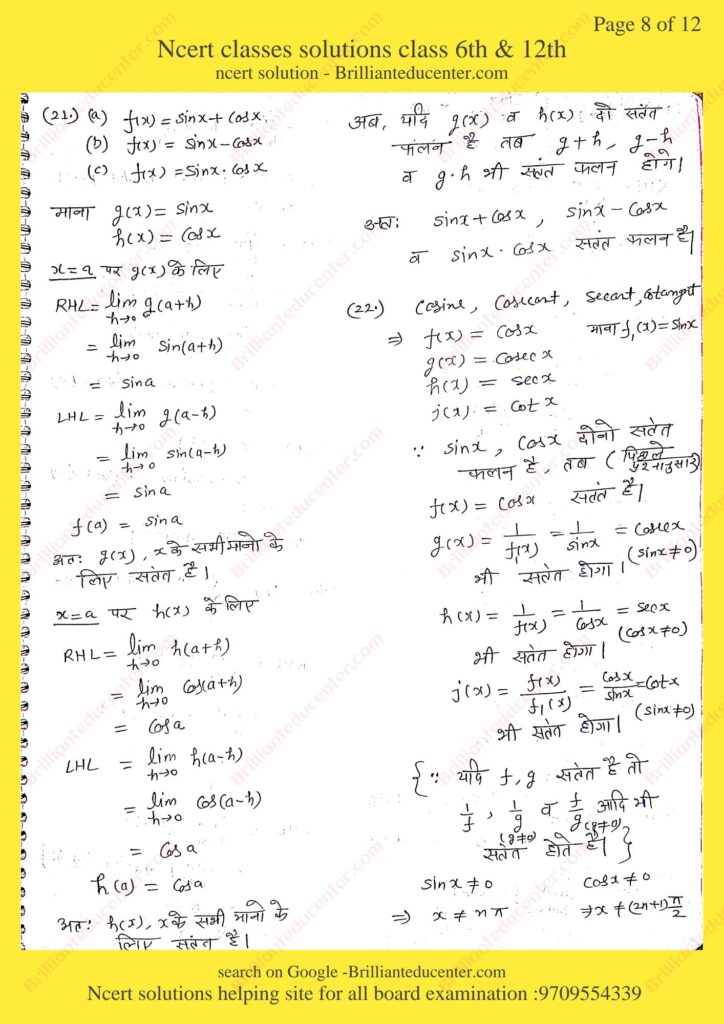 Page 8 of 12
Ncert classes solutions class 6th & 12th
ncert solution - Brillianteducenter.com
(21.) (a) f(x) = sinx + cosx.
(b) f(x) = sinx − cosx
(c) f(x) = sinx · cosx
माना g(x) = sinx
h(x) = cosx
x=a पर g(x) के लिए
RHL = lim h→0 g(a+h)
= lim h→0 sin(a+h)
= sina
LHL = lim h→0 g(a−h)
= lim h→0 sin(a−h)
= sina
f(a) = sina
अतः g(x), x के सभी मानो के
लिए सतत है।
x=a पर h(x) के लिए
RHL = lim h→0 h(a+h)
= lim h→0 cos(a+h)
= cosa
LHL = lim h→0 h(a−h)
= lim h→0 cos(a−h)
= cosa
h(a) = cosa
अतः h(x), x के सभी मानो के
लिए सतत है।
अब, यदि g(x) व h(x) दो सतत
फलन है तब g+h, g−h
व g·h भी सतत फलन होगे।
अतः sinx + cosx, sinx − cosx
व sinx · cosx सतत फलन है।
(22.) cosine, cosecant, secant, cotangent
⇒ f(x) = cosx माना f₁(x) = sinx
g(x) = cosecx
h(x) = secx
j(x) = cotx
∵ sinx, cosx दोनो सतत
फलन है, तब (पिछले प्रश्नानुसार)
f(x) = cosx सतत है।
g(x) = 1/f₁(x) = 1/sinx = cosecx
(sinx≠0)
भी सतत होगा।
h(x) = 1/f(x) = 1/cosx = secx
(cosx≠0)
भी सतत होगा।
j(x) = f(x)/f₁(x) = cosx/sinx = cotx
(sinx≠0)
भी सतत होगा।
{∵ यदि f, g सतत है तो
1/f, 1/g व f/g आदि भी
(g≠0) (g≠0)
सतत होते है।}
sinx≠0 cosx≠0
⇒ x ≠ nπ ⇒ x ≠ (2n+1)π/2
search on Google -Brillianteducenter.com
Ncert solutions helping site for all board examination :9709554339